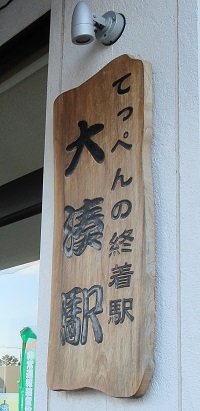 てっぺんの終着駅
大湊駅